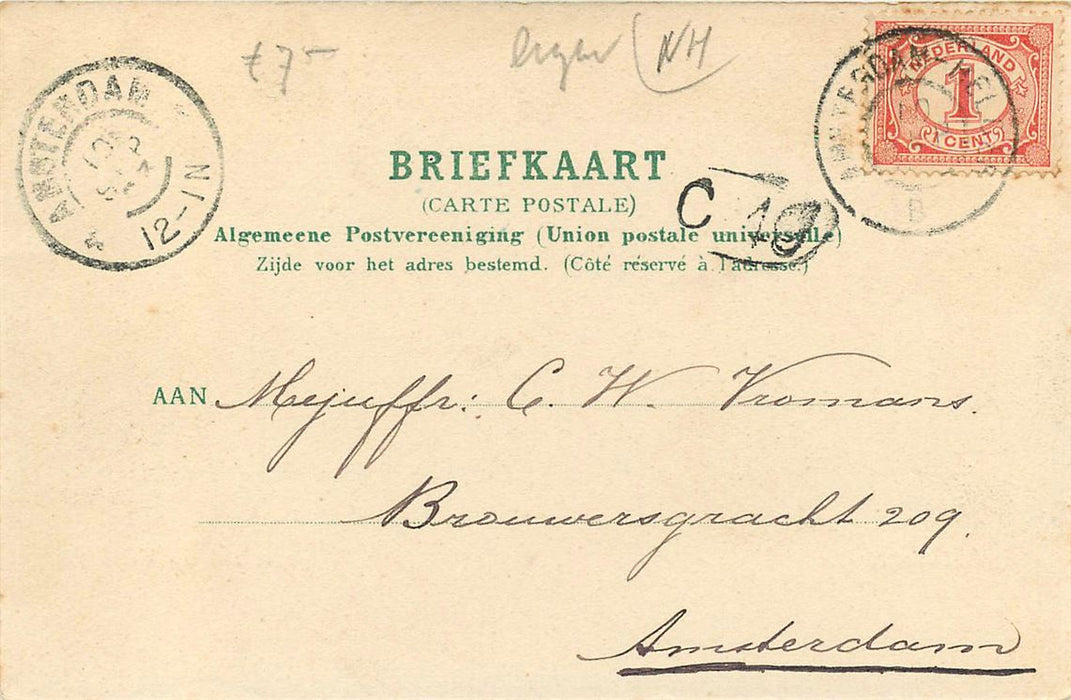 £ 7-
NH
AMSTERDAM
12-1N
NEDERLAND
1
1 CENT
B
BRIEFKAART
(CARTE POSTALE)
C 19
Algemeene Postvereeniging (Union postale universelle)
Zijde voor het adres bestemd. (Côté réservé à l'adresse.)
AAN Mejuffr: C. W. Vromans.
Brouwersgracht 209.
Amsterdam